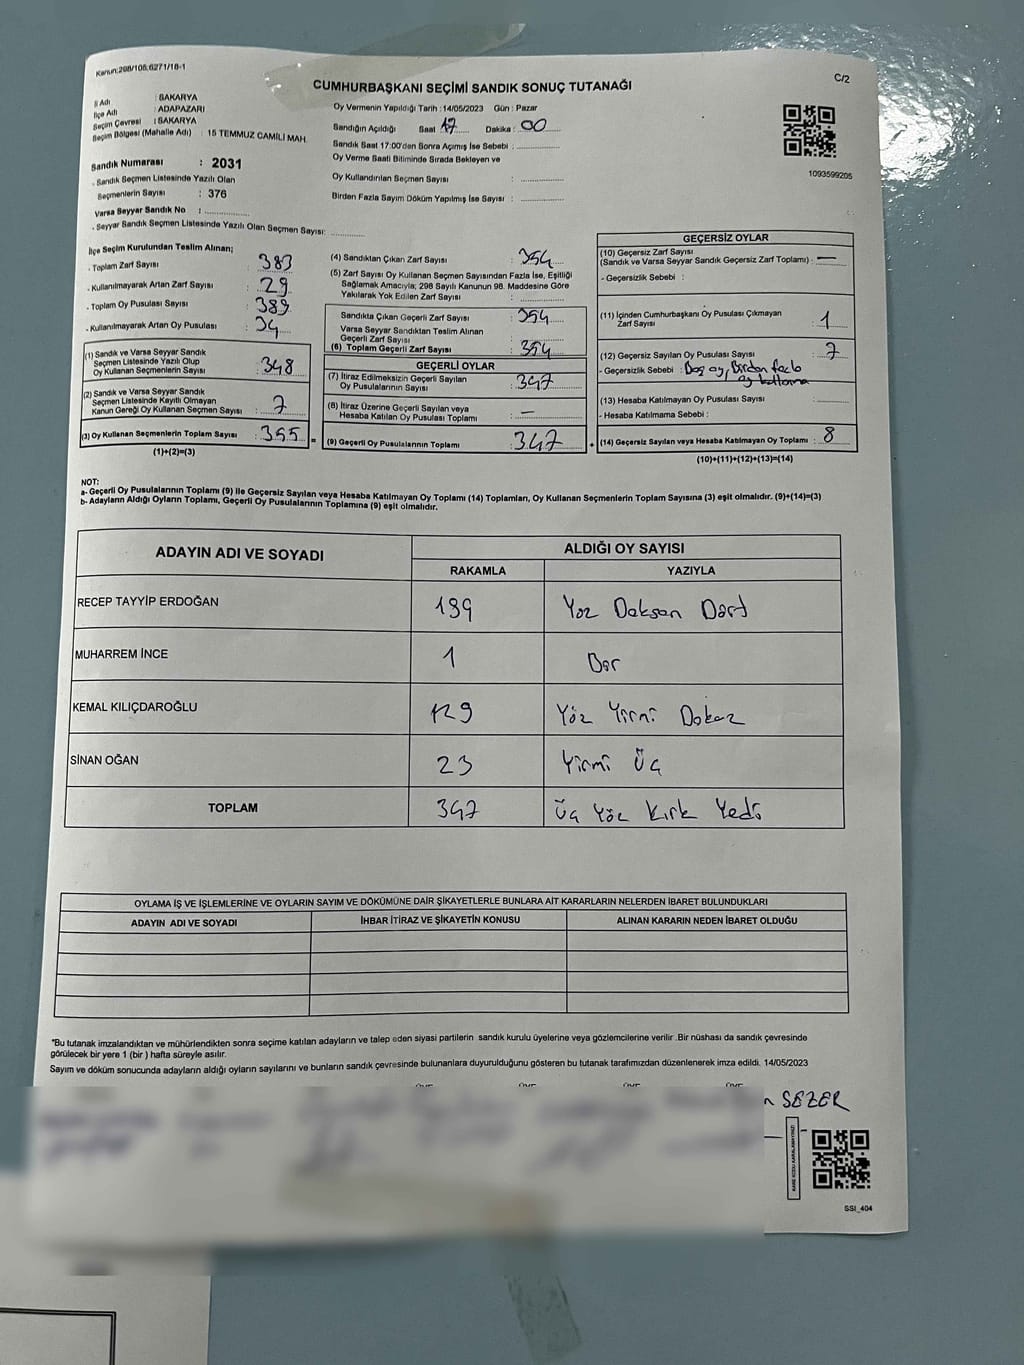 Kanun:298/105;6271/18-1
C/2
CUMHURBAŞKANI SEÇİMİ SANDIK SONUÇ TUTANAĞI
İl Adı : SAKARYA
İlçe Adı : ADAPAZARI
Seçim Çevresi : SAKARYA
Seçim Bölgesi (Mahalle Adı) : 15 TEMMUZ CAMİLİ MAH.
Sandık Numarası : 2031
- Sandık Seçmen Listesinde Yazılı Olan
Seçmenlerin Sayısı : 376
Varsa Seyyar Sandık No :
- Seyyar Sandık Seçmen Listesinde Yazılı Olan Seçmen Sayısı:
Oy Vermenin Yapıldığı Tarih : 14/05/2023 Gün : Pazar
Sandığın Açıldığı Saat 17 Dakika : 00
Sandık Saat 17:00'den Sonra Açımış İse Sebebi :
Oy Verme Saati Bitiminde Sırada Bekleyen ve
Oy Kullandırılan Seçmen Sayısı :
Birden Fazla Sayım Döküm Yapılmış İse Sayısı :
1093599205
İlçe Seçim Kurulundan Teslim Alınan;
- Toplam Zarf Sayısı : 383
- Kullanılmayarak Artan Zarf Sayısı : 29
- Toplam Oy Pusulası Sayısı : 389
- Kullanılmayarak Artan Oy Pusulası : 34
(1) Sandık ve Varsa Seyyar Sandık
Seçmen Listesinde Yazılı Olup
Oy Kullanan Seçmenlerin Sayısı : 348
(2) Sandık ve Varsa Seyyar Sandık
Seçmen Listesinde Kayıtlı Olmayan
Kanun Gereği Oy Kullanan Seçmen Sayısı : 7
(3) Oy Kullanan Seçmenlerin Toplam Sayısı : 355 =
(1)+(2)=(3)
(4) Sandıktan Çıkan Zarf Sayısı : 354
(5) Zarf Sayısı Oy Kullanan Seçmen Sayısından Fazla İse, Eşitliği
Sağlamak Amacıyla; 298 Sayılı Kanunun 98. Maddesine Göre
Yakılarak Yok Edilen Zarf Sayısı :
Sandıkta Çıkan Geçerli Zarf Sayısı : 354
Varsa Seyyar Sandıktan Teslim Alınan
Geçerli Zarf Sayısı :
(6) Toplam Geçerli Zarf Sayısı : 354
GEÇERLİ OYLAR
(7) İtiraz Edilmeksizin Geçerli Sayılan
Oy Pusulalarının Sayısı : 347
(8) İtiraz Üzerine Geçerli Sayılan veya
Hesaba Katılan Oy Pusulası Toplamı : —
(9) Geçerli Oy Pusulalarının Toplamı : 347 +
GEÇERSİZ OYLAR
(10) Geçersiz Zarf Sayısı
(Sandık ve Varsa Seyyar Sandık Geçersiz Zarf Toplamı) : —
- Geçersizlik Sebebi :
(11) İçinden Cumhurbaşkanı Oy Pusulası Çıkmayan
Zarf Sayısı : 1
(12) Geçersiz Sayılan Oy Pusulası Sayısı : 7
- Geçersizlik Sebebi : Boş oy, Birden fazla
oy kullanma
(13) Hesaba Katılmayan Oy Pusulası Sayısı :
- Hesaba Katılmama Sebebi :
(14) Geçersiz Sayılan veya Hesaba Katılmayan Oy Toplamı : 8
(10)+(11)+(12)+(13)=(14)
NOT:
a- Geçerli Oy Pusulalarının Toplamı (9) ile Geçersiz Sayılan veya Hesaba Katılmayan Oy Toplamı (14) Toplamları, Oy Kullanan Seçmenlerin Toplam Sayısına (3) eşit olmalıdır. (9)+(14)=(3)
b- Adayların Aldığı Oyların Toplamı, Geçerli Oy Pusulalarının Toplamına (9) eşit olmalıdır.
ADAYIN ADI VE SOYADI ALDIĞI OY SAYISI
RAKAMLA YAZIYLA
RECEP TAYYİP ERDOĞAN Yüz Doksan Dört
MUHARREM İNCE 1 Bir
KEMAL KILIÇDAROĞLU 129 Yüz Yirmi Dokuz
SİNAN OĞAN 23 Yirmi Üç
TOPLAM 347 Üç Yüz Kırk Yedi
OYLAMA İŞ VE İŞLEMLERİNE VE OYLARIN SAYIM VE DÖKÜMÜNE DAİR ŞİKAYETLERLE BUNLARA AİT KARARLARIN NELERDEN İBARET BULUNDUKLARI
ADAYIN ADI VE SOYADI İHBAR İTİRAZ VE ŞİKAYETİN KONUSU ALINAN KARARIN NEDEN İBARET OLDUĞU
*Bu tutanak imzalandıktan ve mühürlendikten sonra seçime katılan adayların ve talep eden siyasi partilerin sandık kurulu üyelerine veya gözlemcilerine verilir .Bir nüshası da sandık çevresinde
görülecek bir yere 1 (bir ) hafta süreyle asılır.
Sayım ve döküm sonucunda adayların aldığı oyların sayılarını ve bunların sandık çevresinde bulunanlara duyurulduğunu gösteren bu tutanak tarafımızdan düzenlenerek imza edildi. 14/05/2023
SEZER
SSI_404